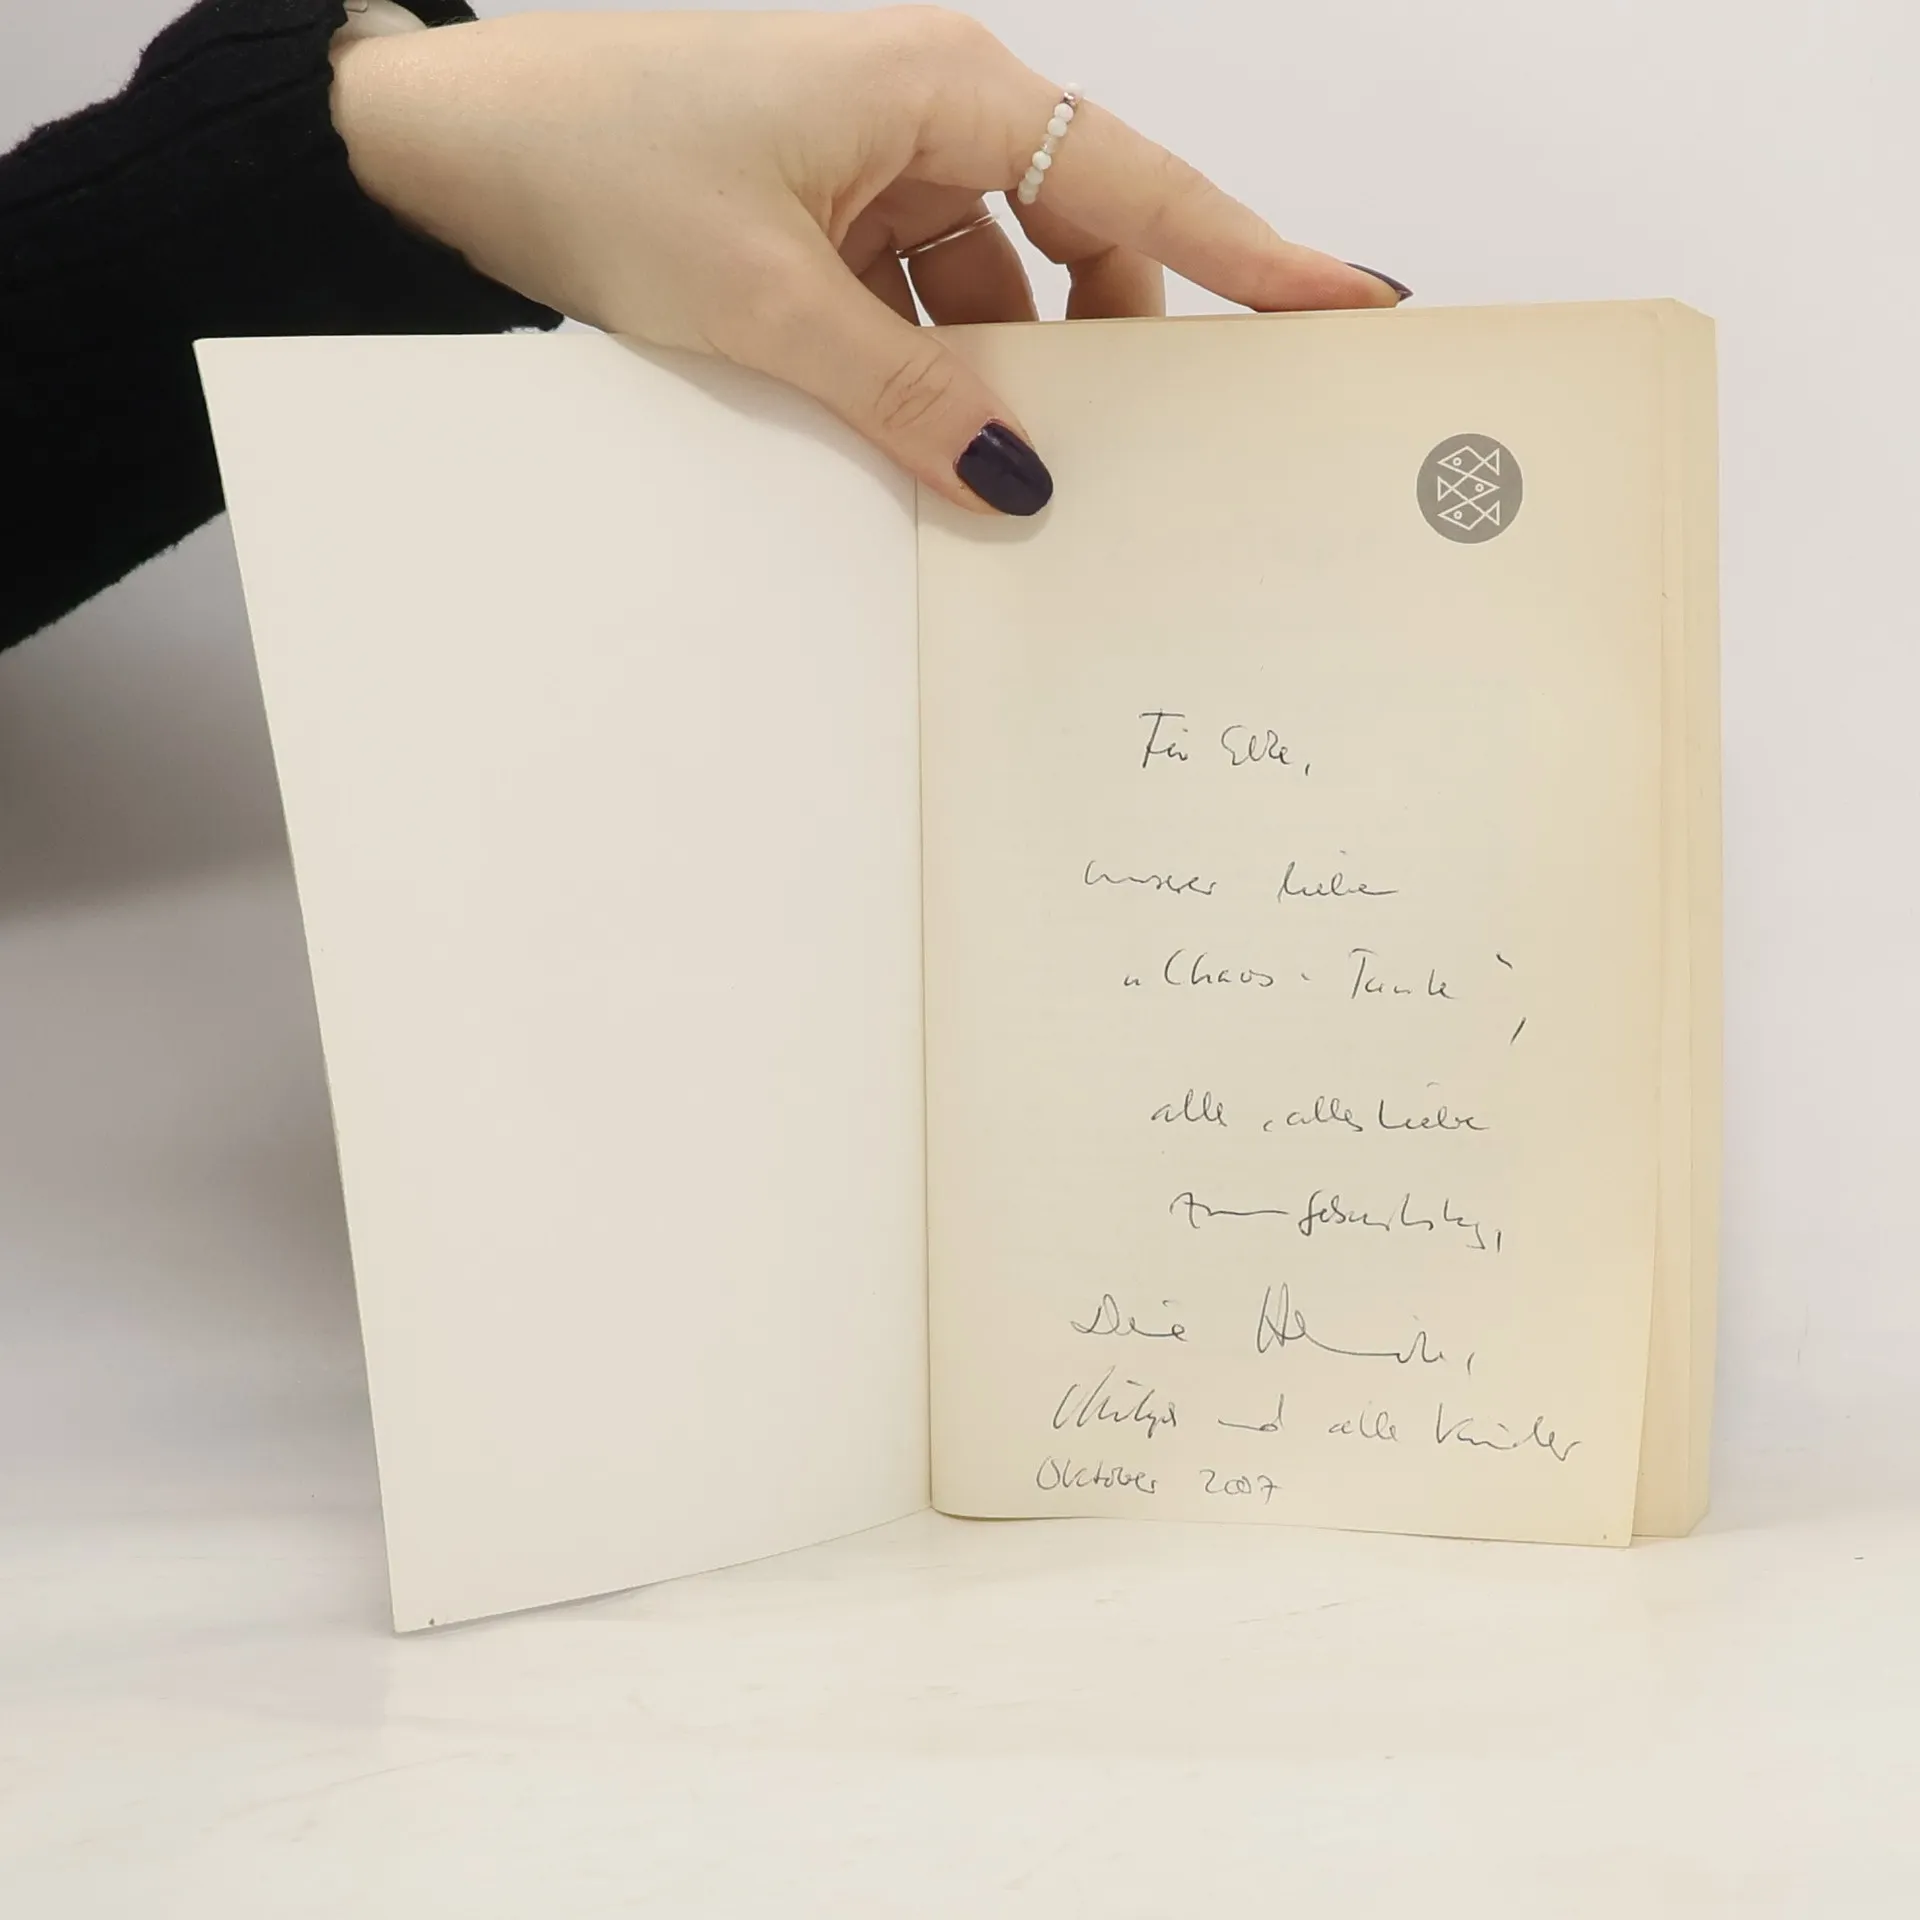 Für Elke,
unserer lieben
„Chaos-Tante“,
alle, alles Liebe
zum Geburtstag,
Deine
und alle Kinder
Oktober 2007